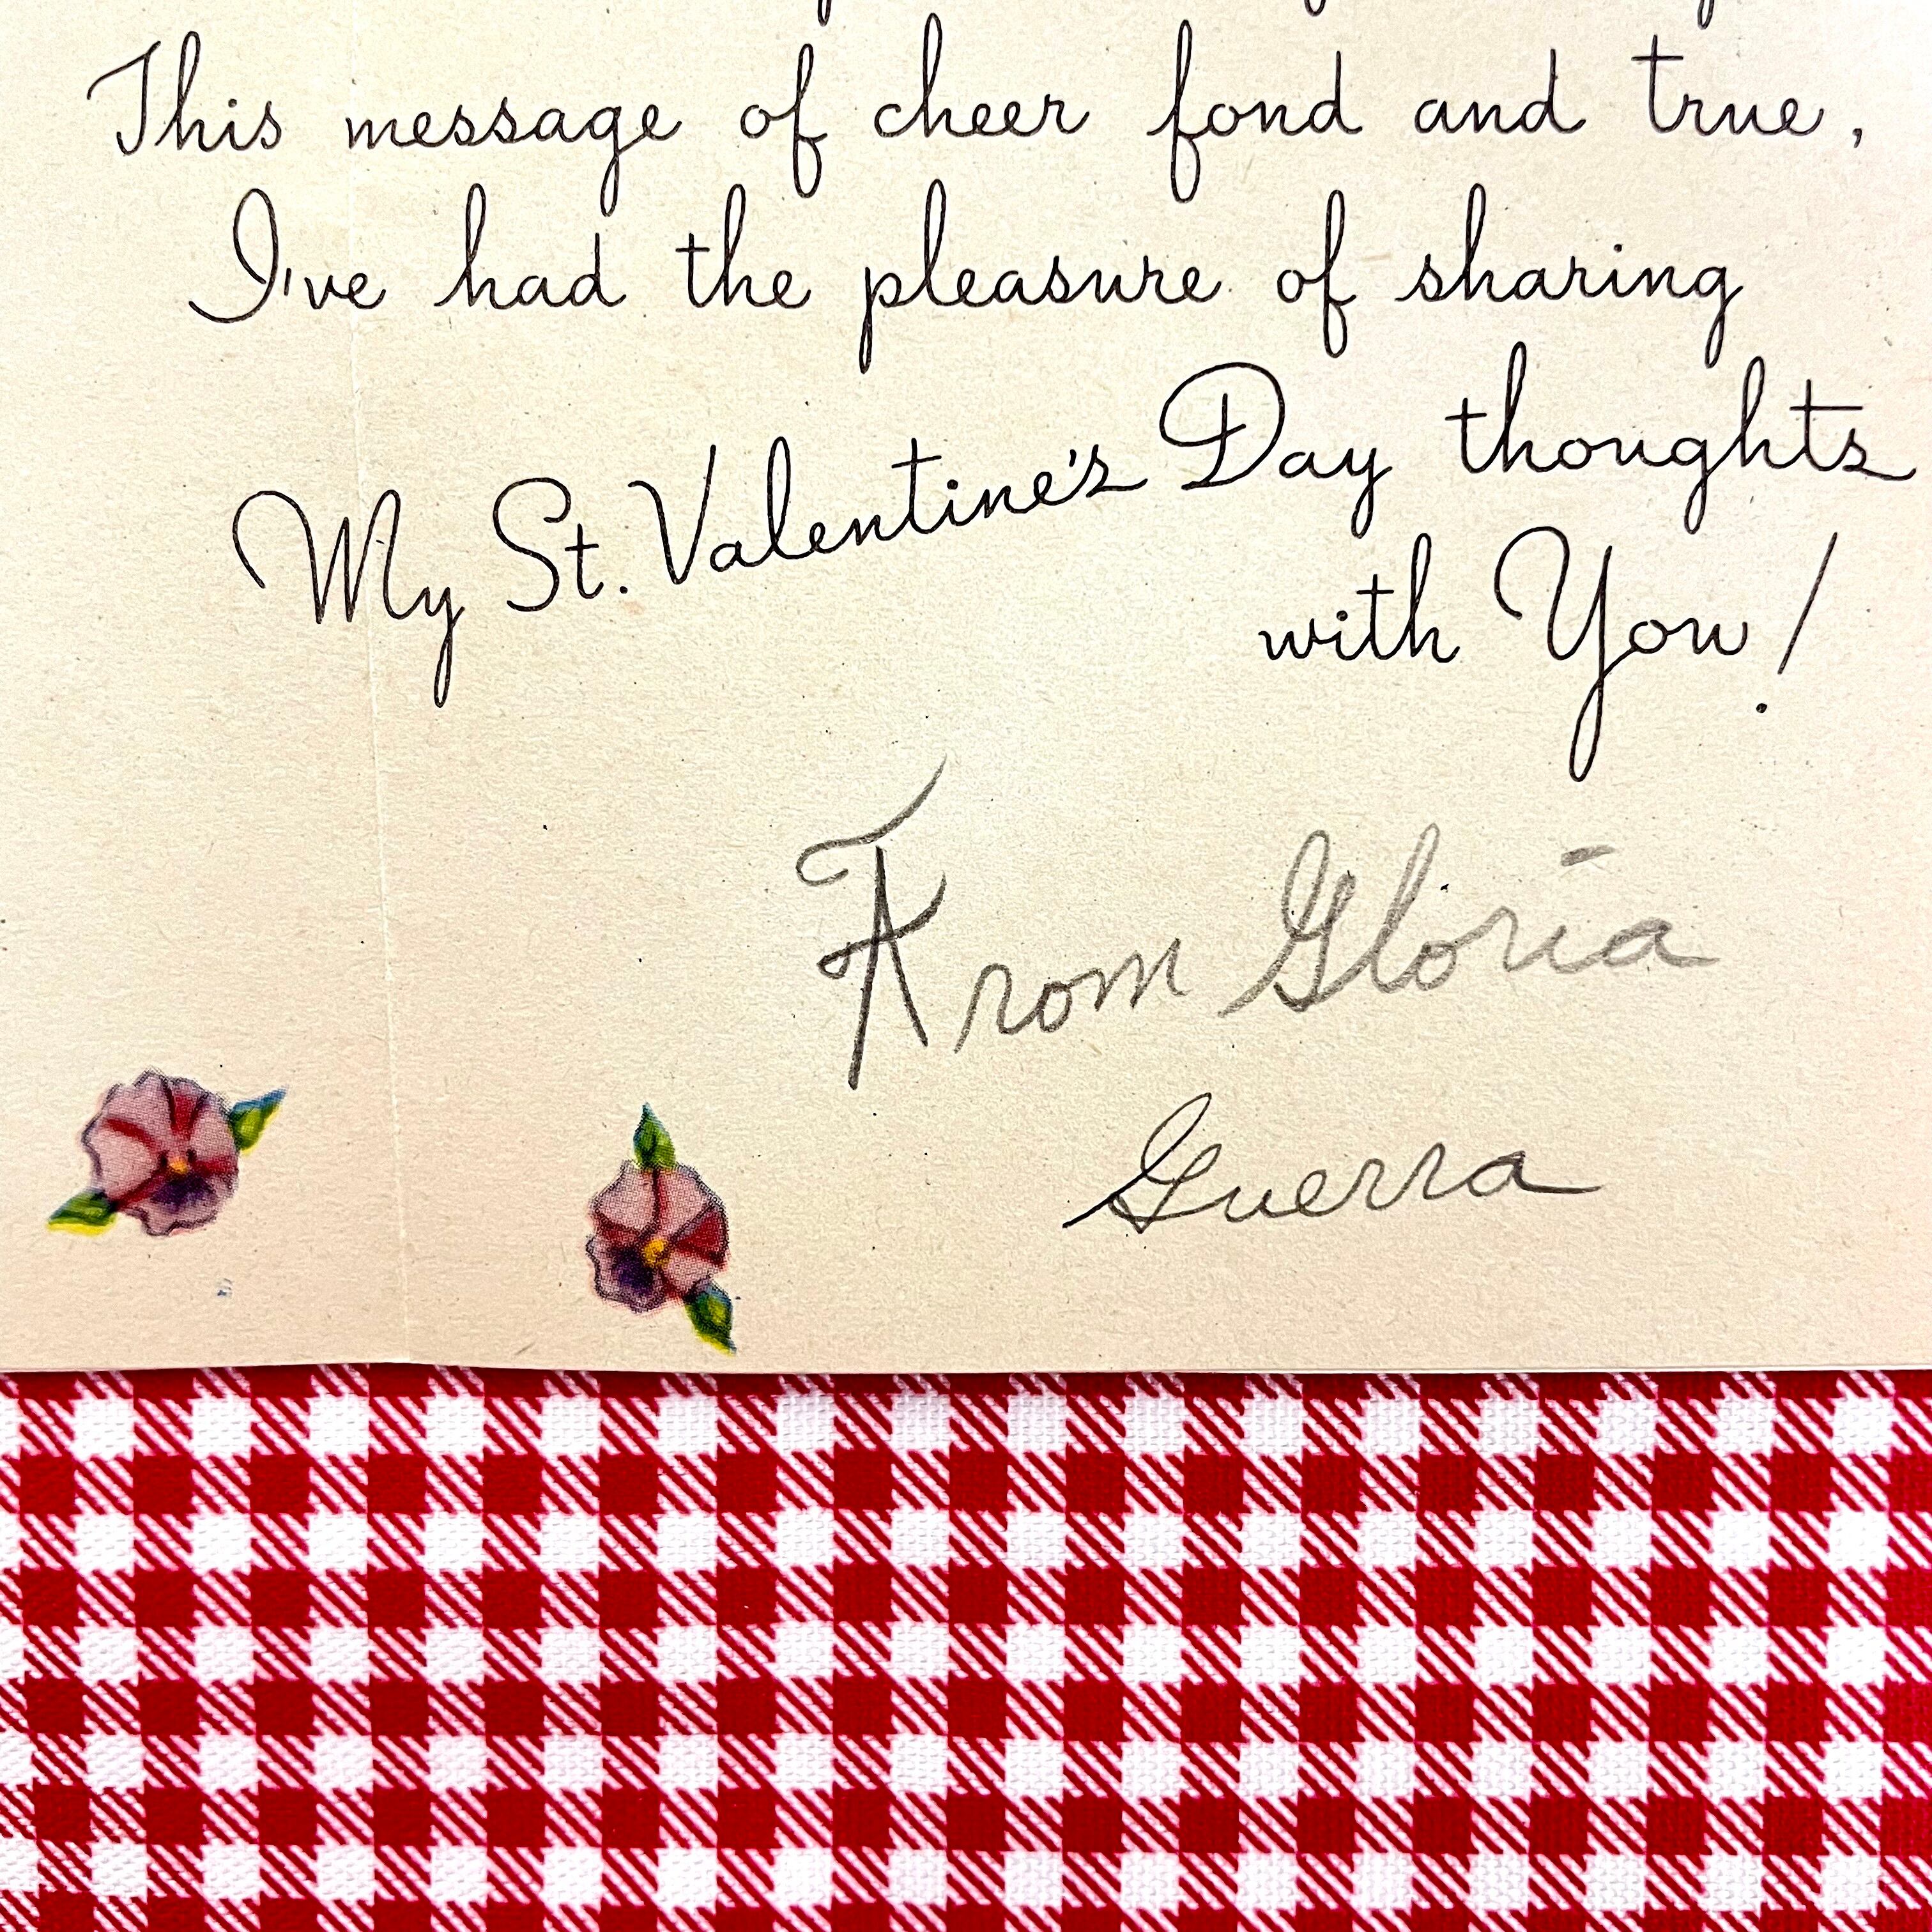 This message of cheer fond and true,
I've had the pleasure of sharing
My St. Valentine's Day thoughts
with You!
From Gloria
Guerra